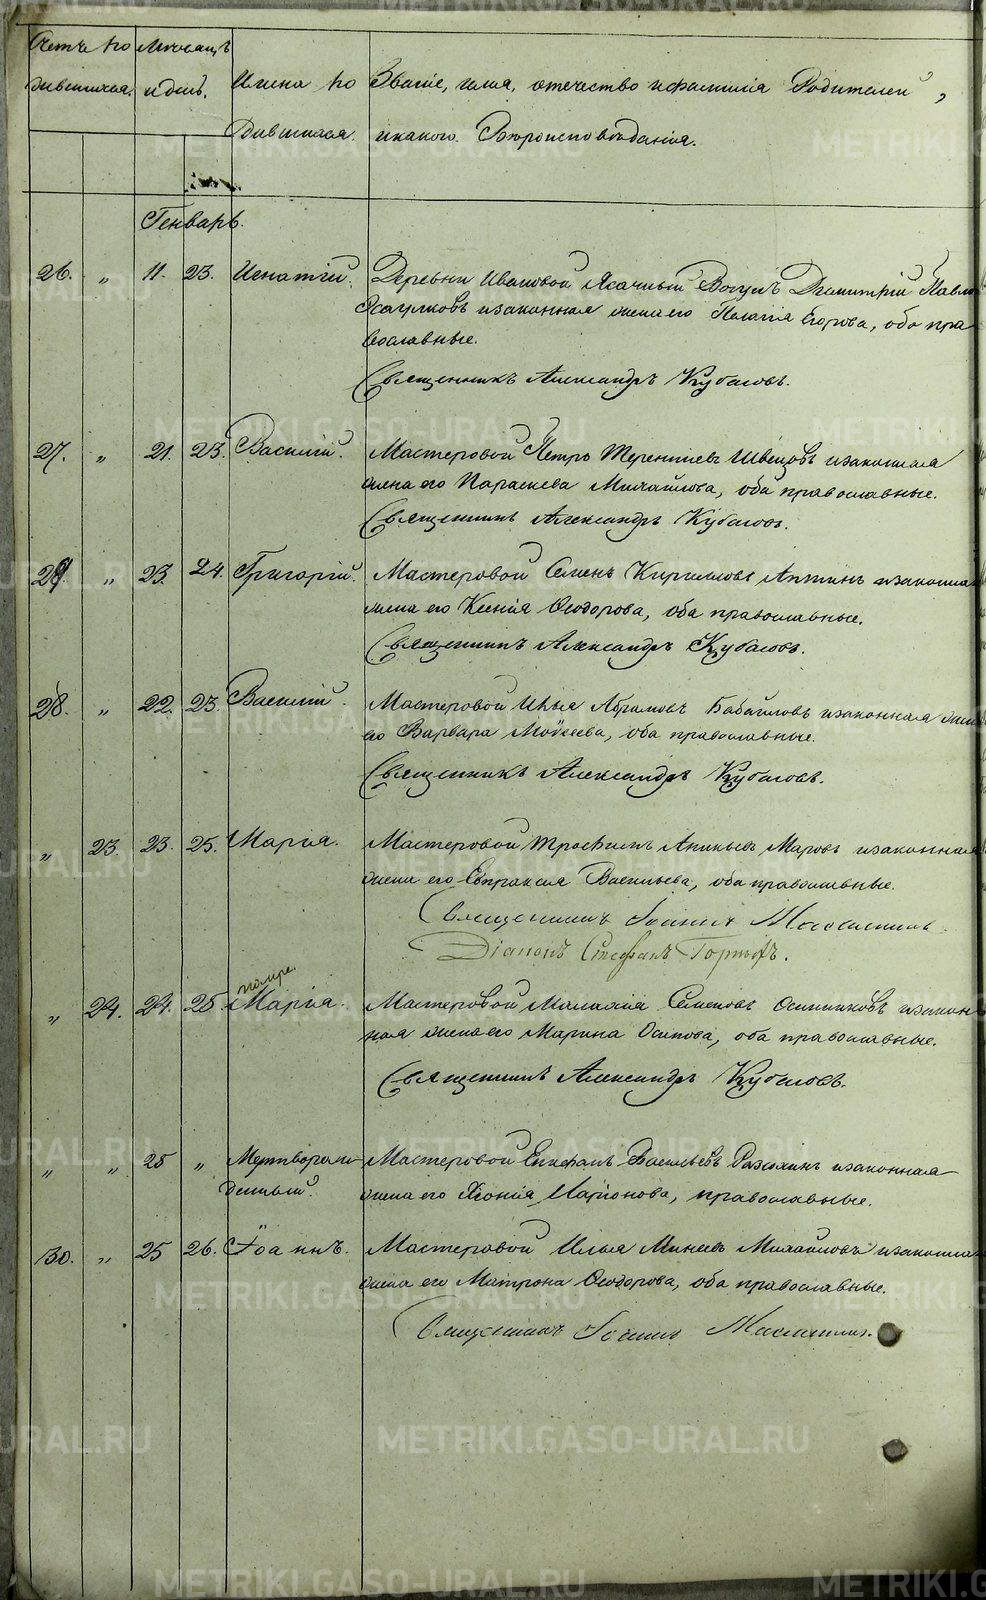 Счетъ ро
дившихся.
Мѣсяцъ
и день.
Имена ро
дившихся.
Званіе, имя, отчество и фамилія Родителей,
и какого Вѣроисповѣданія.
Генварь.
26. " 11. 23. Игнатій. Деревни Ивановой Ясачный Вогулъ Димитрій Павло
и законная жена его Пелагія Егорова, оба пра
вославные.
Священникъ Александръ Кубасовъ.
27. " 21. 23. Василій. Мастеровой Петръ Терентіевъ Швецовъ и законная
жена его Параскева Михайлова, оба православные.
Священникъ Александръ Кубасовъ.
29. " 23. 24. Григорій. Мастеровой Семенъ Кириловъ и законная
жена его Ксенія Ѳеодорова, оба православные.
Священникъ Александръ Кубасовъ.
28. " 22. 23. Василій. Мастеровой Илья Абрамовъ Бабайловъ и законная жена
его Варвара Моѵсеева, оба православные.
Священникъ Александръ Кубасовъ.
" 23. 23. 25. Марія. Мастеровой Трофимъ Ананьевъ Маровъ и законная
жена его Евпраксія Васильева, оба православные.
Священникъ Іоаннъ
Діаконъ Стефанъ
помре.
" 24. 24. 25. Марія. Мастеровой Малахія Семеновъ и закон
ная жена его Марина Осипова, оба православные.
Священникъ Александръ Кубасовъ.
" " 25 " Мертворож- Мастеровой Васильевъ и законная
денный. жена его Ларіонова, православные.
30. " 25 26. Іоаннъ. Мастеровой Илья Минеевъ Михайловъ и законная
жена его Матрона Ѳеодорова, оба православные.
Священникъ Іоаннъ
METRIKI.GASO-URAL.RU